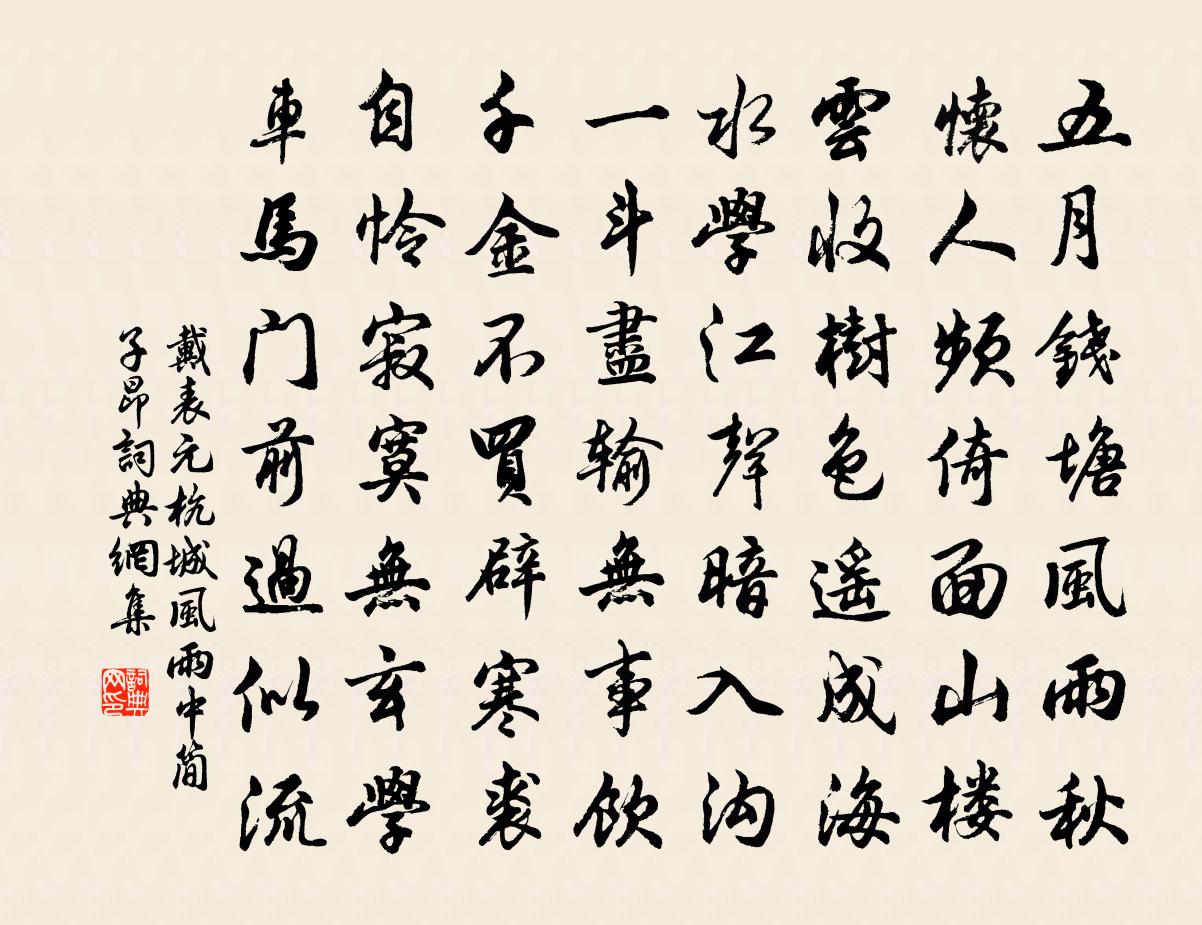 五月錢塘風雨秋
懷人頻倚面山楼
雲收樹色遥成海
水學江聲暗入沟
一斗盡輸無事飲
千金不買辟寒裘
自怜寂寞無玄學
車馬门前過似流
戴表元杭城風雨中简
子昂詞典網集
詞典网印